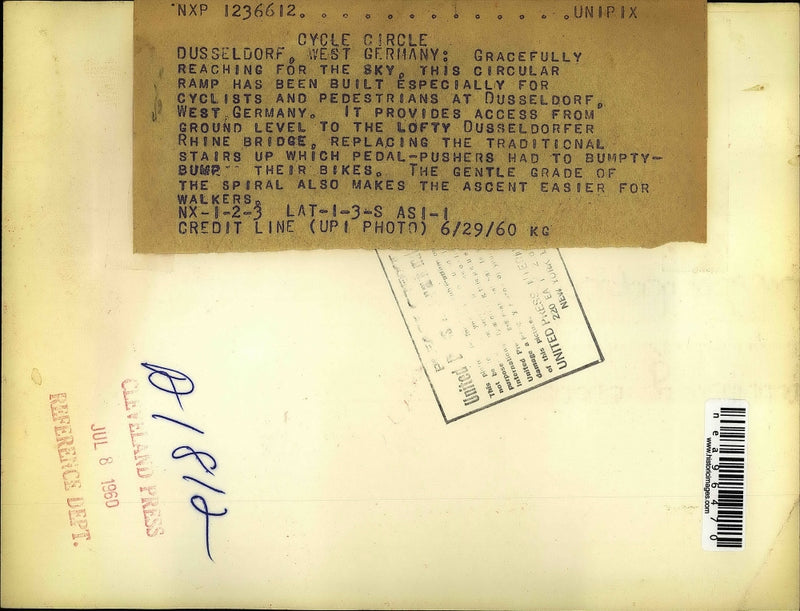 NXP 1236612. . . . . . . . . . . . . . . . . . .UNIPIX
CYCLE CIRCLE
DUSSELDORF, WEST GERMANY: GRACEFULLY
REACHING FOR THE SKY, THIS CIRCULAR
RAMP HAS BEEN BUILT ESPECIALLY FOR
CYCLISTS AND PEDESTRIANS AT DUSSELDORF,
WEST GERMANY. IT PROVIDES ACCESS FROM
GROUND LEVEL TO THE LOFTY DUSSELDORFER
RHINE BRIDGE, REPLACING THE TRADITIONAL
STAIRS UP WHICH PEDAL-PUSHERS HAD TO BUMPTY-
BUMP THEIR BIKES. THE GENTLE GRADE OF
THE SPIRAL ALSO MAKES THE ASCENT EASIER FOR
WALKERS.
NX-1-2-3 LAT-1-3-S ASI-1
CREDIT LINE (UPI PHOTO) 6/29/60 KG
United
This
purpose
not be
International
United Pr
damage a
of this picture
UNITED PRESS
220 EA
NEW YORK
D1812
CLEVELAND PRESS
JUL 8 1960
REFERENCE DEPT.
nea96470
www.historicimages.com